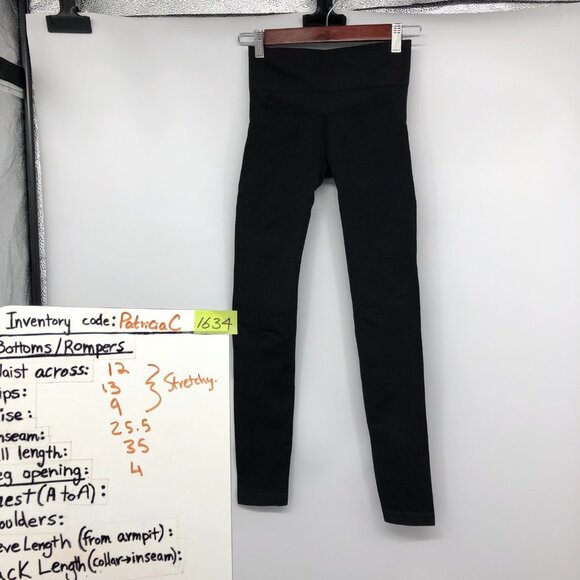 Inventory code: Patricia C 1634
Bottoms/Rompers
Waist across: 12
ips: 13 Stretchy.
ise: 9
nseam: 25.5
ll length: 35
eg opening: 4
hest (A to A):
oulders:
eve Length (from armpit):
ack Length (collar→inseam):